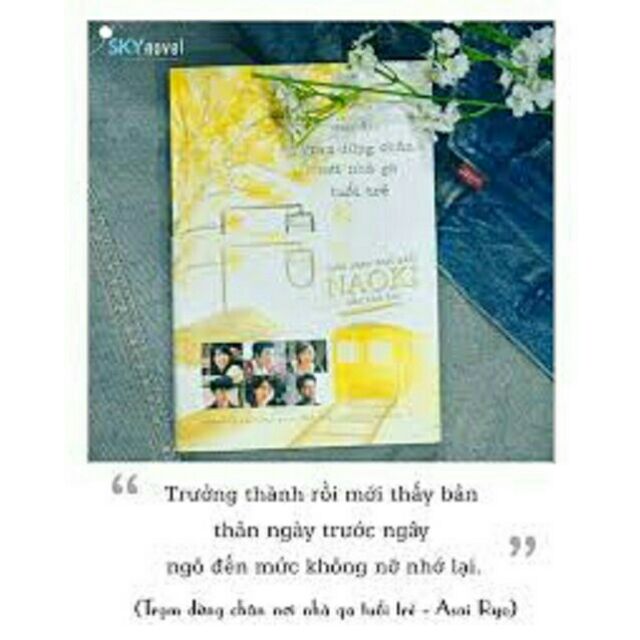 SKYnovel
trạm dừng chân
nơi nhà ga
tuổi trẻ
NAOKI
Trưởng thành rồi mới thấy bản
thân ngày trước ngây
ngô đến mức không nỡ nhớ lại.
(Trạm dừng chân nơi nhà ga tuổi trẻ - Asai Ryo)